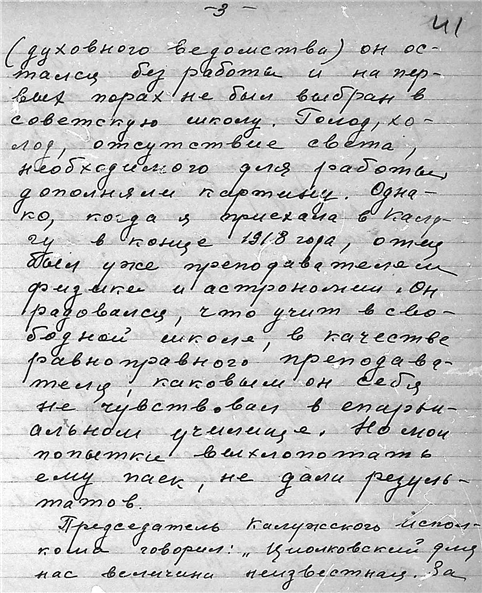 -3-
41
(духовного ведомства) он ос-
тался без работы и на пер-
вых порах не был выбран в
советскую школу. Голод, хо-
лод, отсутствие света,
необходимого для работы,
дополняли картину. Одна-
ко, когда я приехала в Калу-
гу в конце 1918 года, отец
был уже преподавателем
физики и астрономии. Он
радовался, что учит в сво-
бодной школе, в качестве
равноправного преподава-
теля, каковым он себя
не чувствовал в епархи-
альном училище. Но мои
попытки выхлопотать
ему паек, не дали резуль-
татов.
Председатель Калужского испол-
кома говорил: „Циолковский для
нас величина неизвестная. За